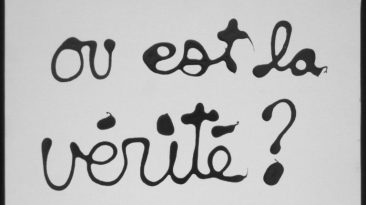 ou est la
vérité?